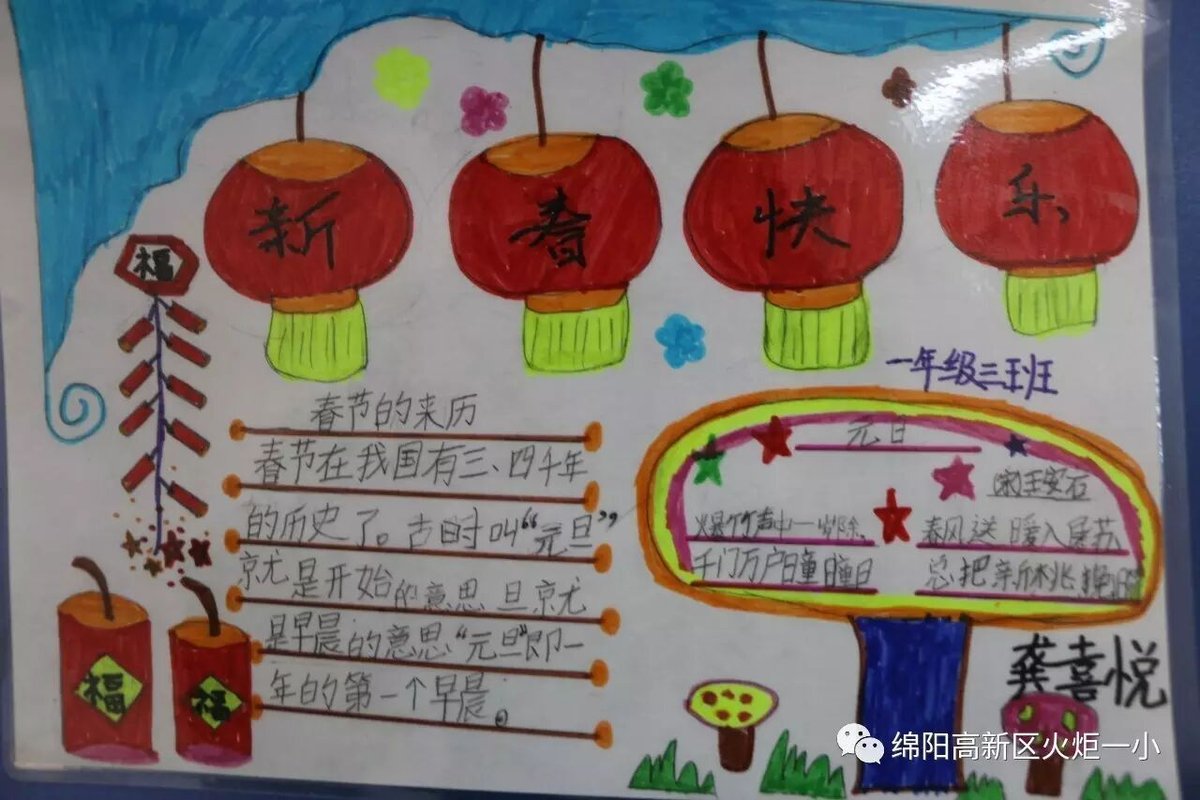 新春快乐
福
一年级三班
春节的来历
春节在我国有三、四千年
的历史了。古时叫“元旦”
就是开始的意思 旦就
是早晨的意思“元旦”即一
年的第一个早晨。
元日
宋王安石
爆竹声中一岁除,
春风送暖入屠苏
千门万户曈曈日
总把新桃换旧
龚喜悦
福
福
绵阳高新区火炬一小